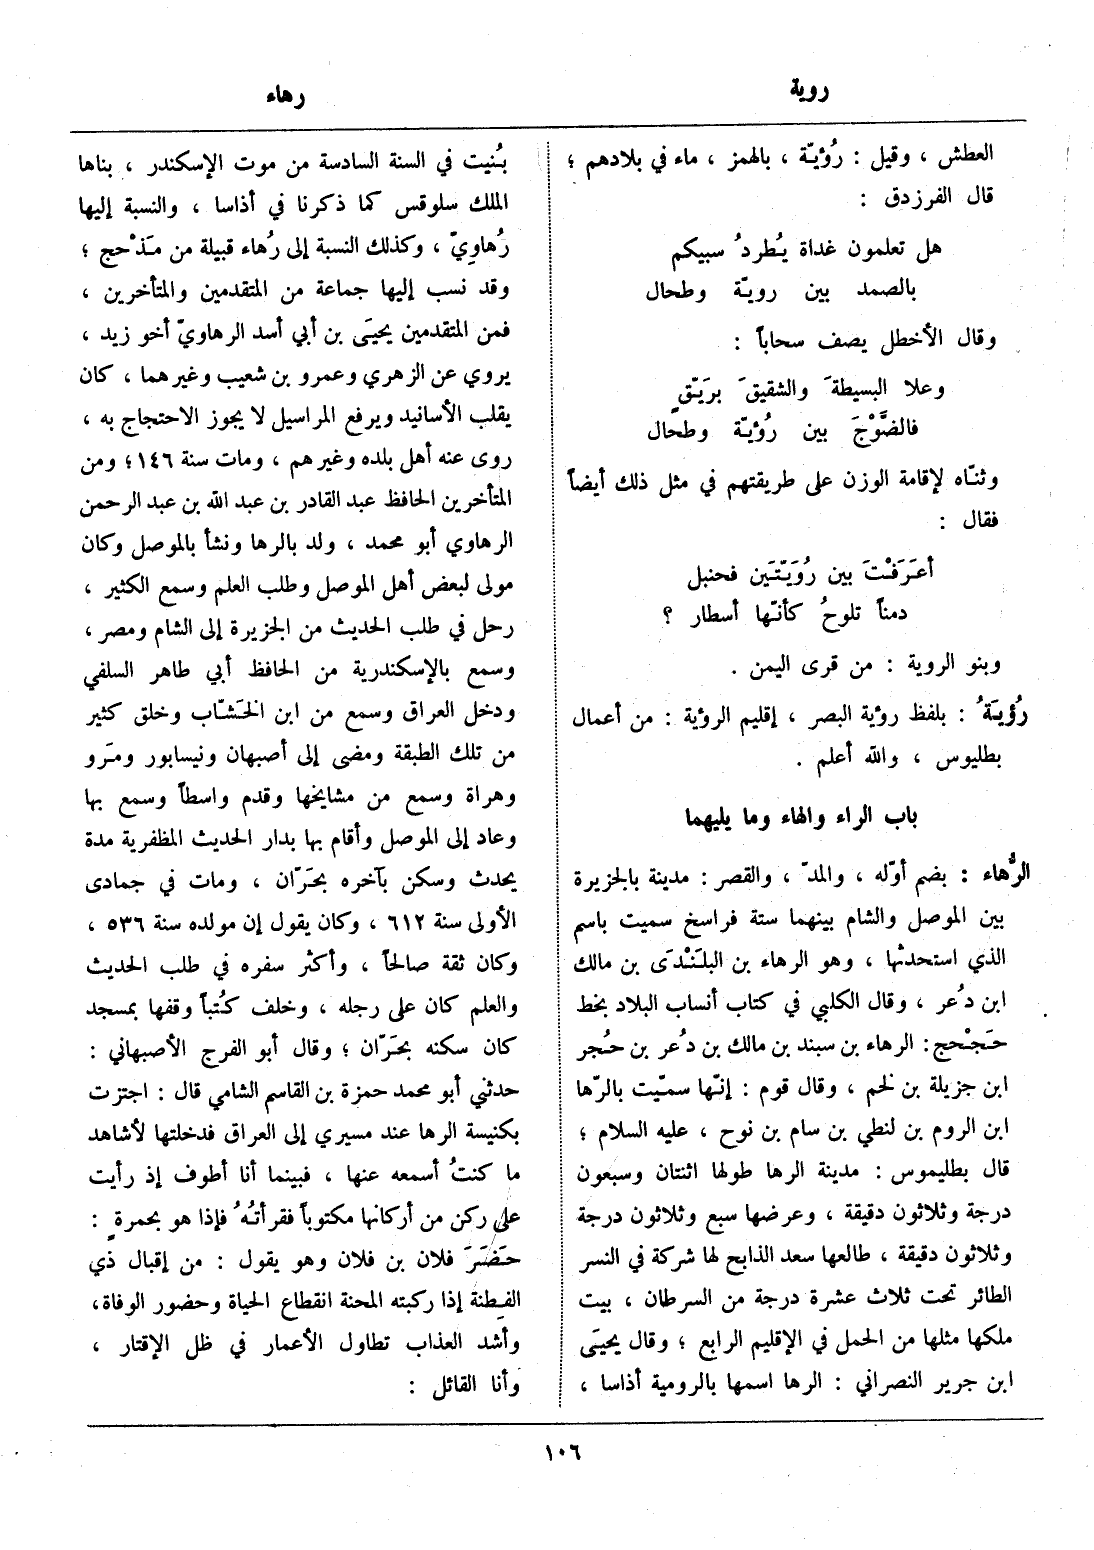 روية
رهاء
العطش ، وقيل : رُؤيّة ، بالهمز ، ماء في بلادهم ؛
قال الفرزدق :
هل تعلمون غداة يُطردُ سبيكم
بالصمد بين رويّة وطحال
وقال الأخطل يصف سحاباً :
وعلا البسيطةَ والشقيقَ بريَّقٍ
فالضَّوْجَ بين رُؤيّة وطحال
وثنّاه لإقامة الوزن على طريقتهم في مثل ذلك أيضاً
فقال :
أعَرَفْتَ بين رُوَيّتَين فحنبل
دمناً تلوحُ كأنّها أسطار ؟
وبنو الروية : من قرى اليمن .
رُؤيَةُ : بلفظ رؤية البصر ، إقليم الرؤية : من أعمال
بطليوس ، والله أعلم .
باب الراء والهاء وما يليهما
الرُّهاء : بضم أوّله ، والمدّ ، والقصر : مدينة بالجزيرة
بين الموصل والشام بينهما ستة فراسخ سميت باسم
الذي استحدثها ، وهو الرهاء بن البلَنْدَى بن مالك
ابن دُعر ، وقال الكلبي في كتاب أنساب البلاد بخط
حَجْحج : الرهاء بن سبند بن مالك بن دُعر بن حُجر
ابن جزيلة بن لخم ، وقال قوم : إنّها سمّيت بالرّها
ابن الروم بن لنطي بن سام بن نوح ، عليه السلام ؛
قال بطليموس : مدينة الرها طولها اثنتان وسبعون
درجة وثلاثون دقيقة ، وعرضها سبع وثلاثون درجة
وثلاثون دقيقة ، طالعها سعد الذابح لها شركة في النسر
الطائر تحت ثلاث عشرة درجة من السرطان ، بيت
ملكها مثلها من الحمل في الإقليم الرابع ؛ وقال يحيَى
ابن جرير النصراني : الرها اسمها بالرومية أذاسا ،
بُنيت في السنة السادسة من موت الإسكندر ، بناها
الملك سلوقس كما ذكرنا في أذاسا ، والنسبة إليها
رُهاوِيّ ، وكذلك النسبة إلى رُهاء قبيلة من مَذْحج ؛
وقد نسب إليها جماعة من المتقدمين والمتأخرين ،
فمن المتقدمين يحيَى بن أبي أسد الرهاويّ أخو زيد ،
يروي عن الزهري وعمرو بن شعيب وغيرهما ، كان
يقلب الأسانيد ويرفع المراسيل لا يجوز الاحتجاج به ،
روى عنه أهل بلده وغيرهم ، ومات سنة ١٤٦؛ ومن
المتأخرين الحافظ عبد القادر بن عبد الله بن عبد الرحمن
الرهاوي أبو محمد ، ولد بالرها ونشأ بالموصل وكان
مولى لبعض أهل الموصل وطلب العلم وسمع الكثير ،
رحل في طلب الحديث من الجزيرة إلى الشام ومصر ،
وسمع بالإسكندرية من الحافظ أبي طاهر السلفي
ودخل العراق وسمع من ابن الخَشّاب وخلق كثير
من تلك الطبقة ومضى إلى أصبهان ونيسابور ومَرو
وهراة وسمع من مشايخها وقدم واسطاً وسمع بها
وعاد إلى الموصل وأقام بها بدار الحديث المظفرية مدة
يحدث وسكن بآخره بحَرّان ، ومات في جمادى
الأولى سنة ٦١٢ ، وكان يقول إن مولده سنة ٥٣٦ ،
وكان ثقة صالحاً ، وأكثر سفره في طلب الحديث
والعلم كان على رجله ، وخلف كُتباً وقفها بمسجد
كان سكنه بحَرّان ؛ وقال أبو الفرج الأصبهاني :
حدثني أبو محمد حمزة بن القاسم الشامي قال : اجتزت
بكنيسة الرها عند مسيري إلى العراق فدخلتها لأشاهد
ما كنتُ أسمعه عنها ، فبينما أنا أطوف إذ رأيت
على ركن من أركانها مكتوباً فقرأتُهُ فإذا هو بحمرةٍ :
حَضَرَ فلان بن فلان وهو يقول : من إقبال ذي
الفِطنة إذا ركبته المحنة انقطاع الحياة وحضور الوفاة،
وأشد العذاب تطاول الأعمار في ظل الإقتار ،
وأنا القائل :
١٠٦